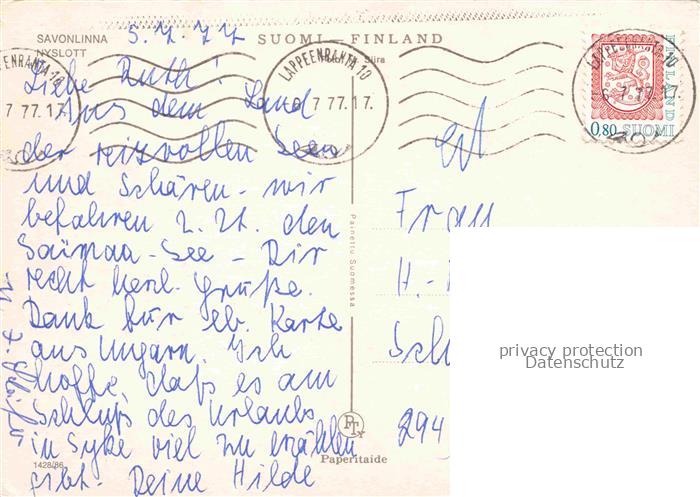 SAVONLINNA
NYSLOTT
SUOMI – FINLAND
5.7.77
LAPPEENRANTA 10
7 77.17.
LAPPEENRANTA 10
7 77.17.
0,80 SUOMI
FINLAND
Liebe Ruth!
Aus dem Land
der reizvollen Seen
und Schären - wir
befahren z. Zt. den
Saimaa-See - Dir
recht herzl. Grüße.
Dank für lb. Karte
aus Ungarn. Ich
hoffe, daß es am
Schluß des Urlaubs
in Syke viel zu erzählen
gibt. Deine Hilde
Painettu Suomessa
Frau
H.-
Sch
294
privacy protection
Datenschutz
PTY
Paperitaide
1428/86